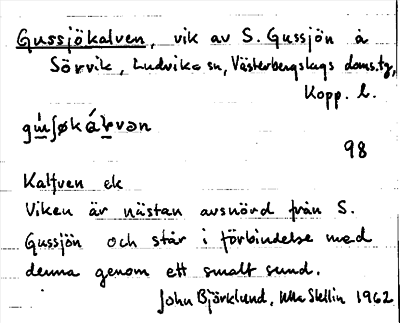 Gussjökalven, vik av S. Gussjön å
Sörvik, Ludvika sn, Västerbergslags doms.tg,
Kopp. l.
98
Kalfven ek
Viken är nästan avsnörd från S.
Gussjön och står i förbindelse med
denna genom ett smalt sund.
John Björklund, Stellin 1962